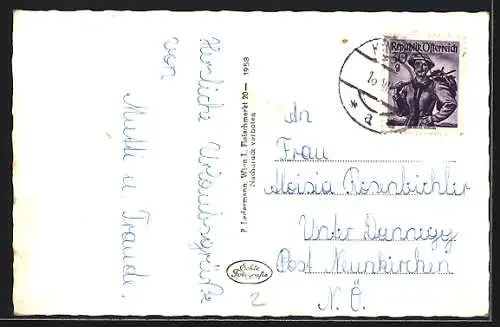 Herzliche Urlaubsgrüße
von
Mutti u. Traude.
P. Ledermann, Wien I, Fleischmarkt 20— 1958
Nachdruck verboten
Echte
Fotografie
2
Republik Österreich
30
g
a
An
Frau
Aloisia Rosenbichler
Unter Dannegg
Post Neunkirchen
N. Ö.